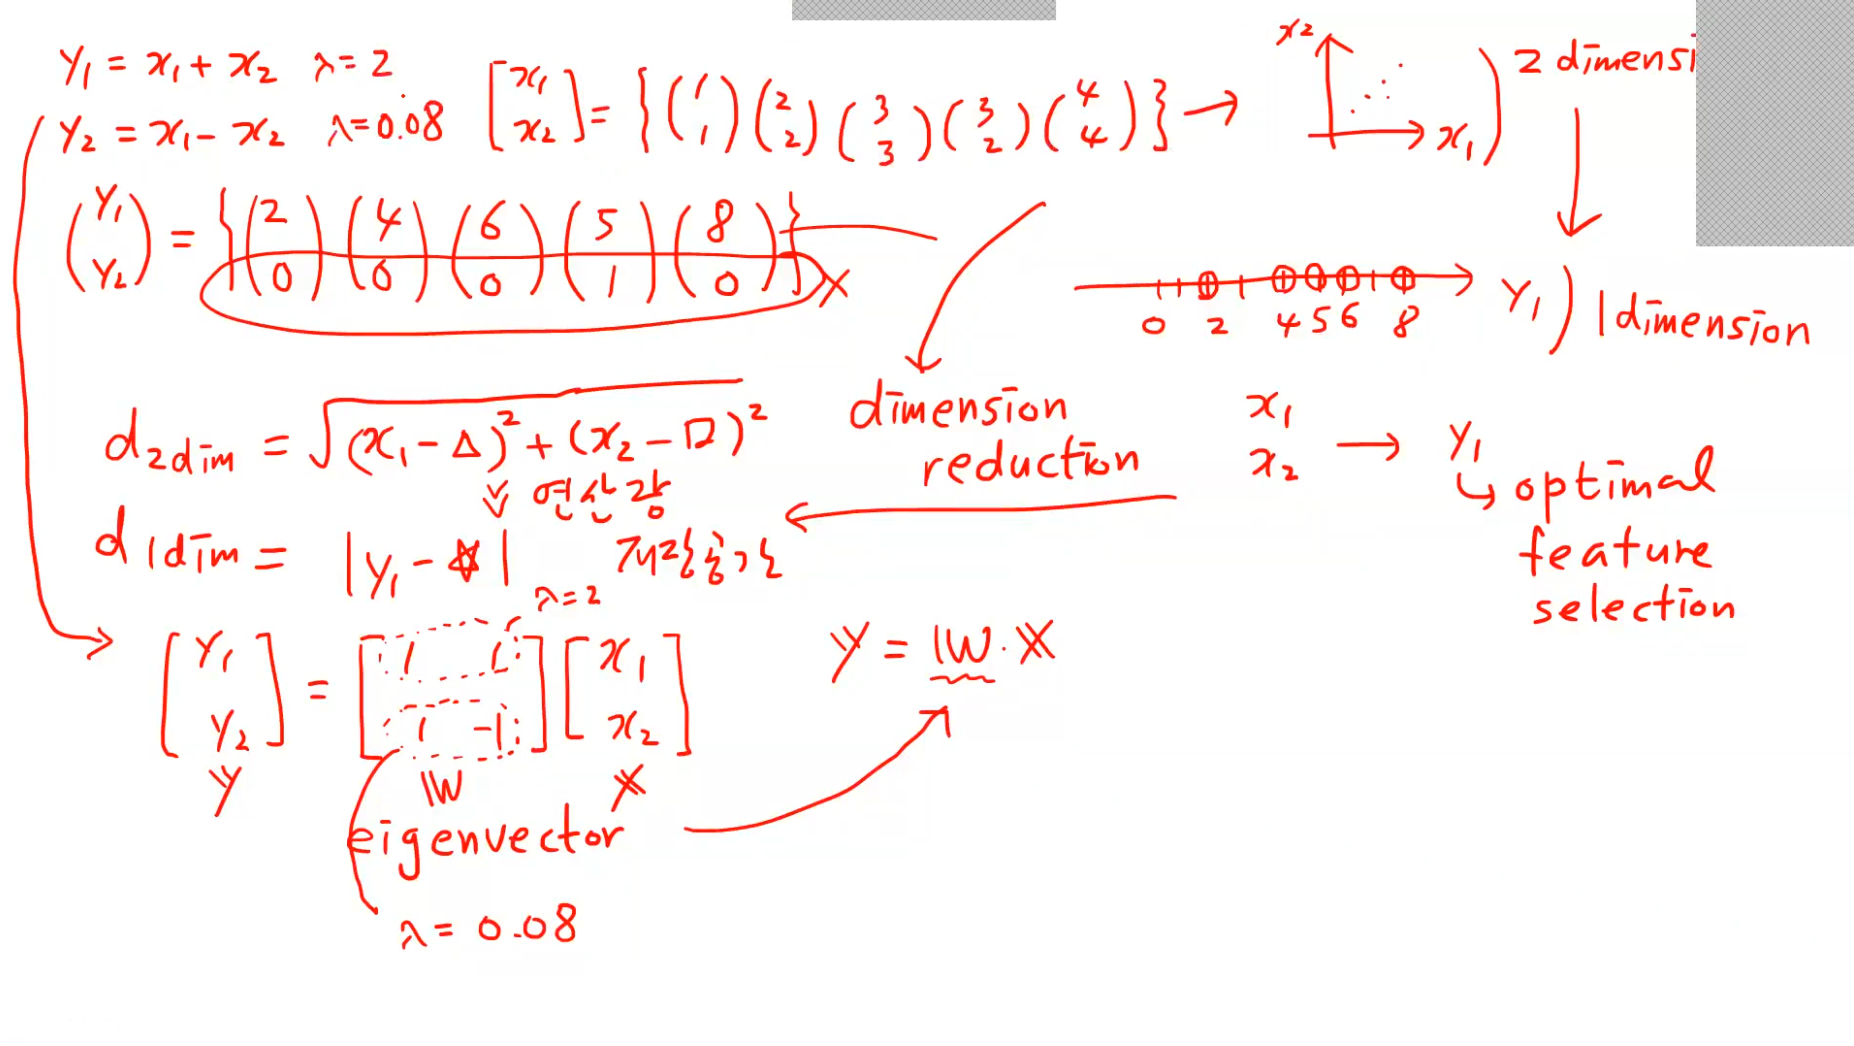 y₁ = x₁ + x₂ λ = 2
y₂ = x₁ - x₂ λ = 0.08
[x₁ x₂] = {(1 1) (2 2) (3 3) (3 2) (4 4)} →
x₂
x₁
2 dimensi
(y₁ y₂) = {(2 0) (4 0) (6 0) (5 1) (8 0)} X
0 2 4 5 6 8 y₁
1 dimension
d₂dim = √(x₁ - △)² + (x₂ - □)²
연산량
d₁dim = |y₁ - ☆|
λ = 2
dimension
reduction
x₁
x₂ → y₁
optimal
feature
selection
[y₁ y₂] = [1 1 1 -1] [x₁ x₂]
Y W X
Y = W · X
eigenvector
λ = 0.08